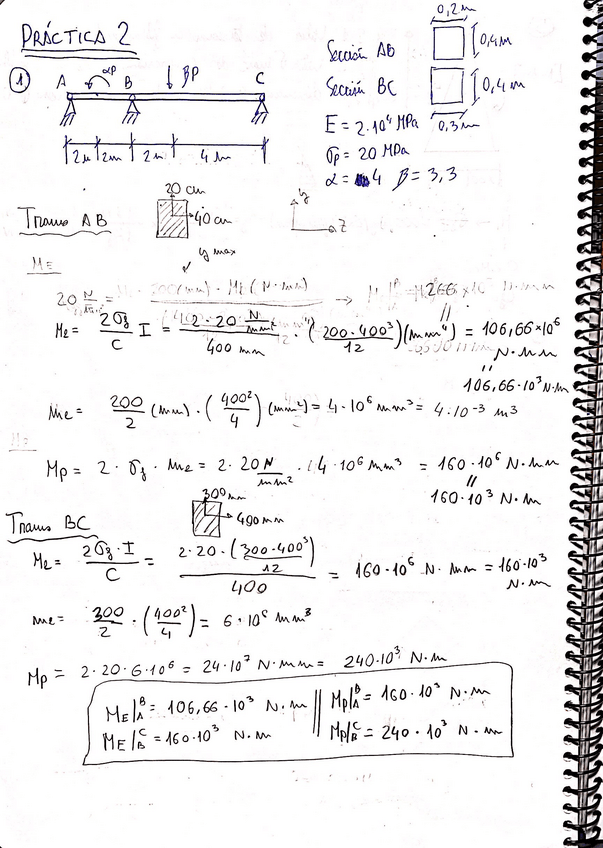 PRÁCTICA 2
0,2m
0,4m
Sección AB
① A αP B βP C
Sección BC
0,4m
0,3m
E = 2·10⁴ MPa
2m 2m 2m 4m
σp = 20 MPa
α = 4 β = 3,3
20 cm
Tramo AB
40 cm
y
z
ME
y max
20 N/mm² = 200(mm) · ME (N·mm)
Me = 2σf/C I = 2·20 N/mm² / 400 mm · (200·400³/12)(mm⁴) = 106,66×10⁶ N·mm
106,66·10³ N·m
me = 200/2 (mm) · (400²/4)(mm²) = 4·10⁶ mm³ = 4·10⁻³ m³
Mp = 2 · σf · me = 2·20 N/mm² · 4·10⁶ mm³ = 160·10⁶ N·mm
160·10³ N·m
300mm
Tramo BC
400mm
Me = 2σf·I/C = 2·20·(300·400³/12)/400 = 160·10⁶ N·mm = 160·10³ N·m
me = 300/2 · (400²/4) = 6·10⁶ mm³
Mp = 2·20·6·10⁶ = 24·10⁷ N·mm = 240·10³ N·m
ME|ᴮA = 106,66·10³ N·m || Mp|ᴮA = 160·10³ N·m
ME|ᶜB = 160·10³ N·m || Mp|ᶜB = 240·10³ N·m